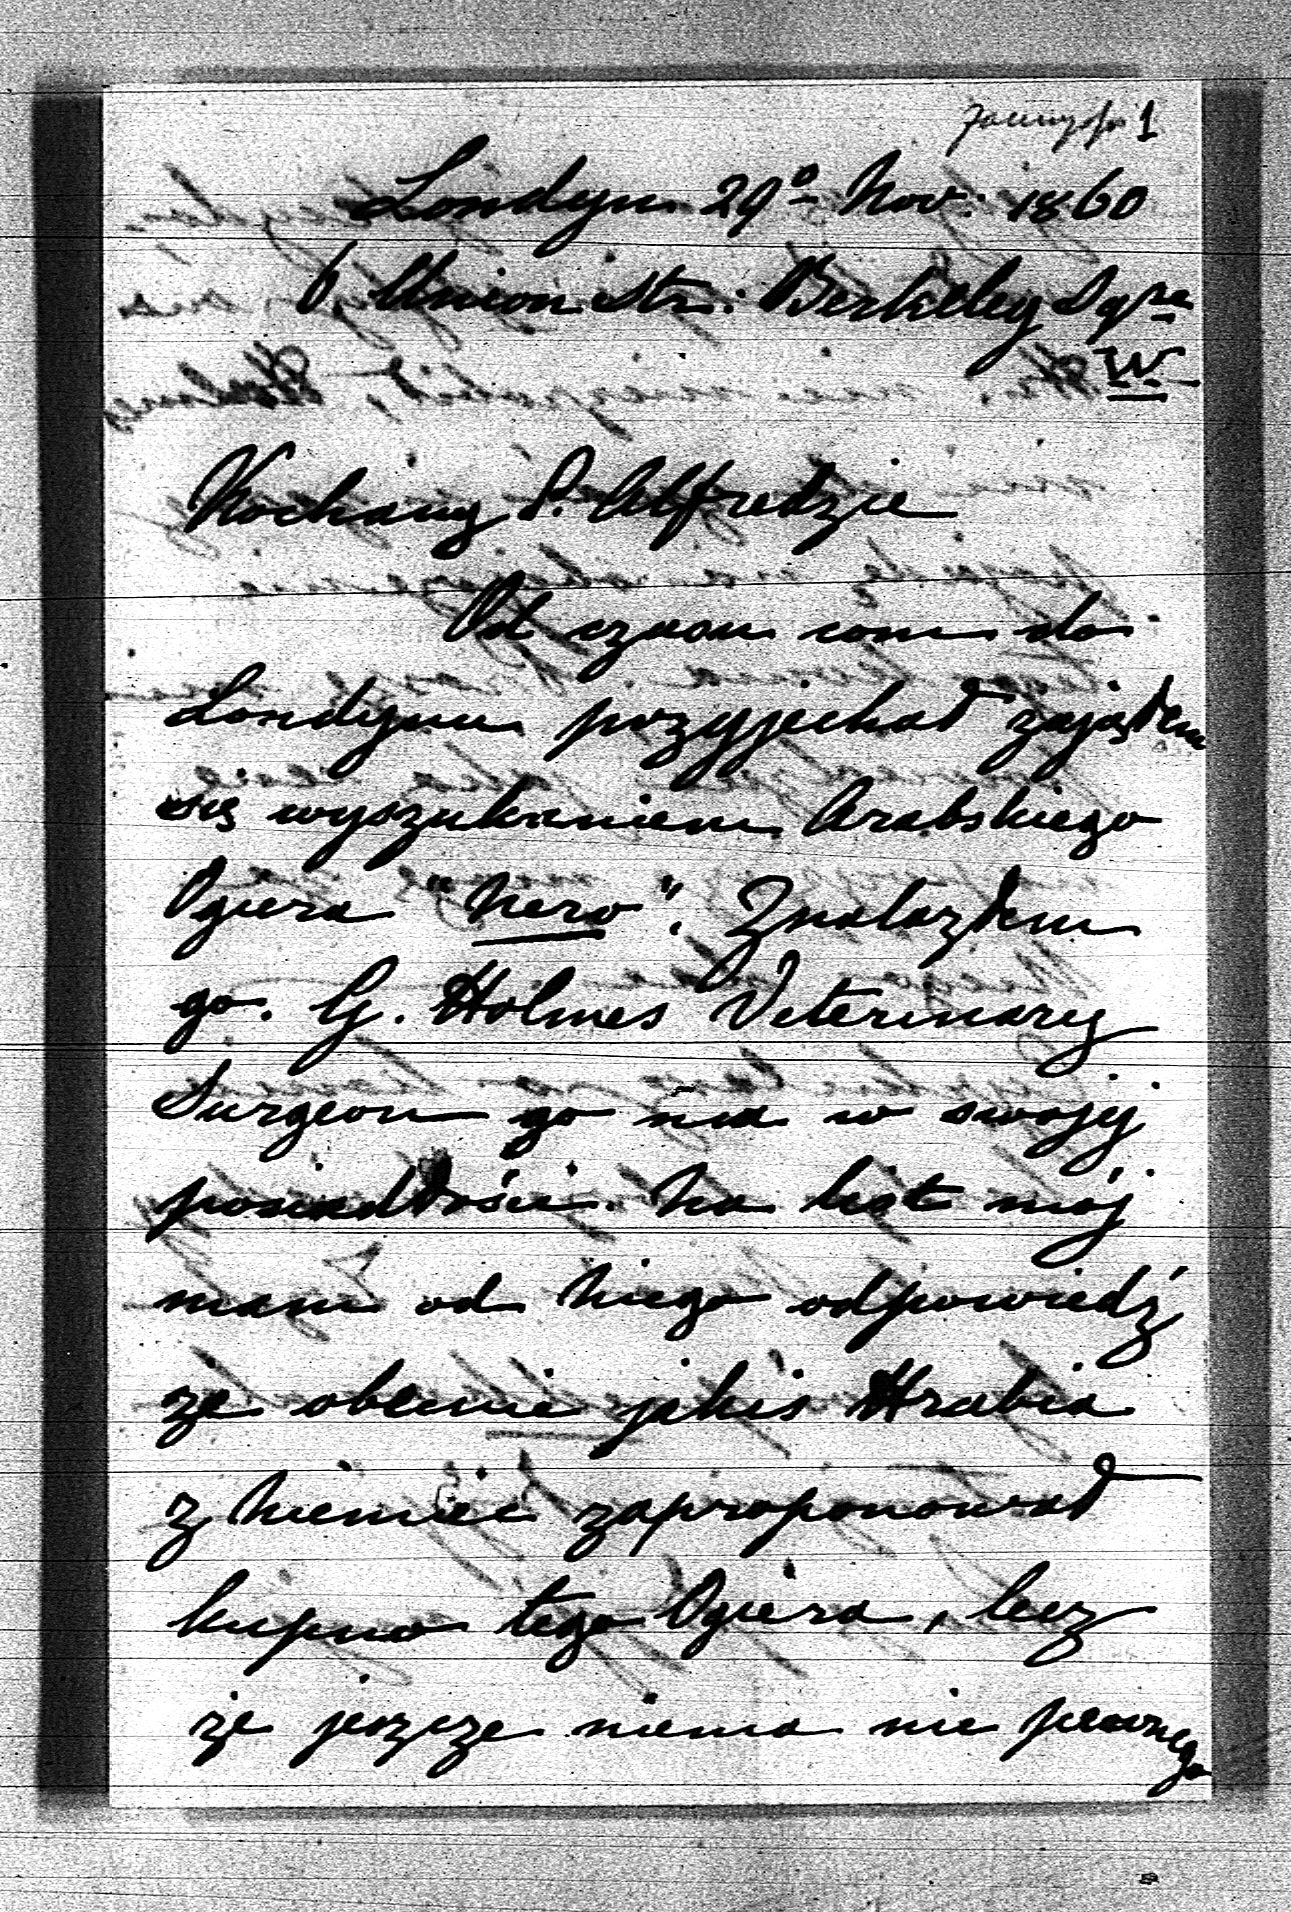 1
Londyn 29º Nov: 1860
6. Union Str: Berkeley Sqre
W.
Kochany P. Alfredzie
Od czasu com do
Londynu przyjechał zająłem
się wyszukaniem Arabskiego
Ogiera "Nero". Znalazłem
go. G. Holmes Veterinary
Surgeon go ma w swojej
posiadłości. Na list mój
mam od niego odpowiedź
że obecnie jakis Hrabia
z Niemiec zaproponował
kupno tego Ogiera, lecz
że jeszcze niema nic pewnego